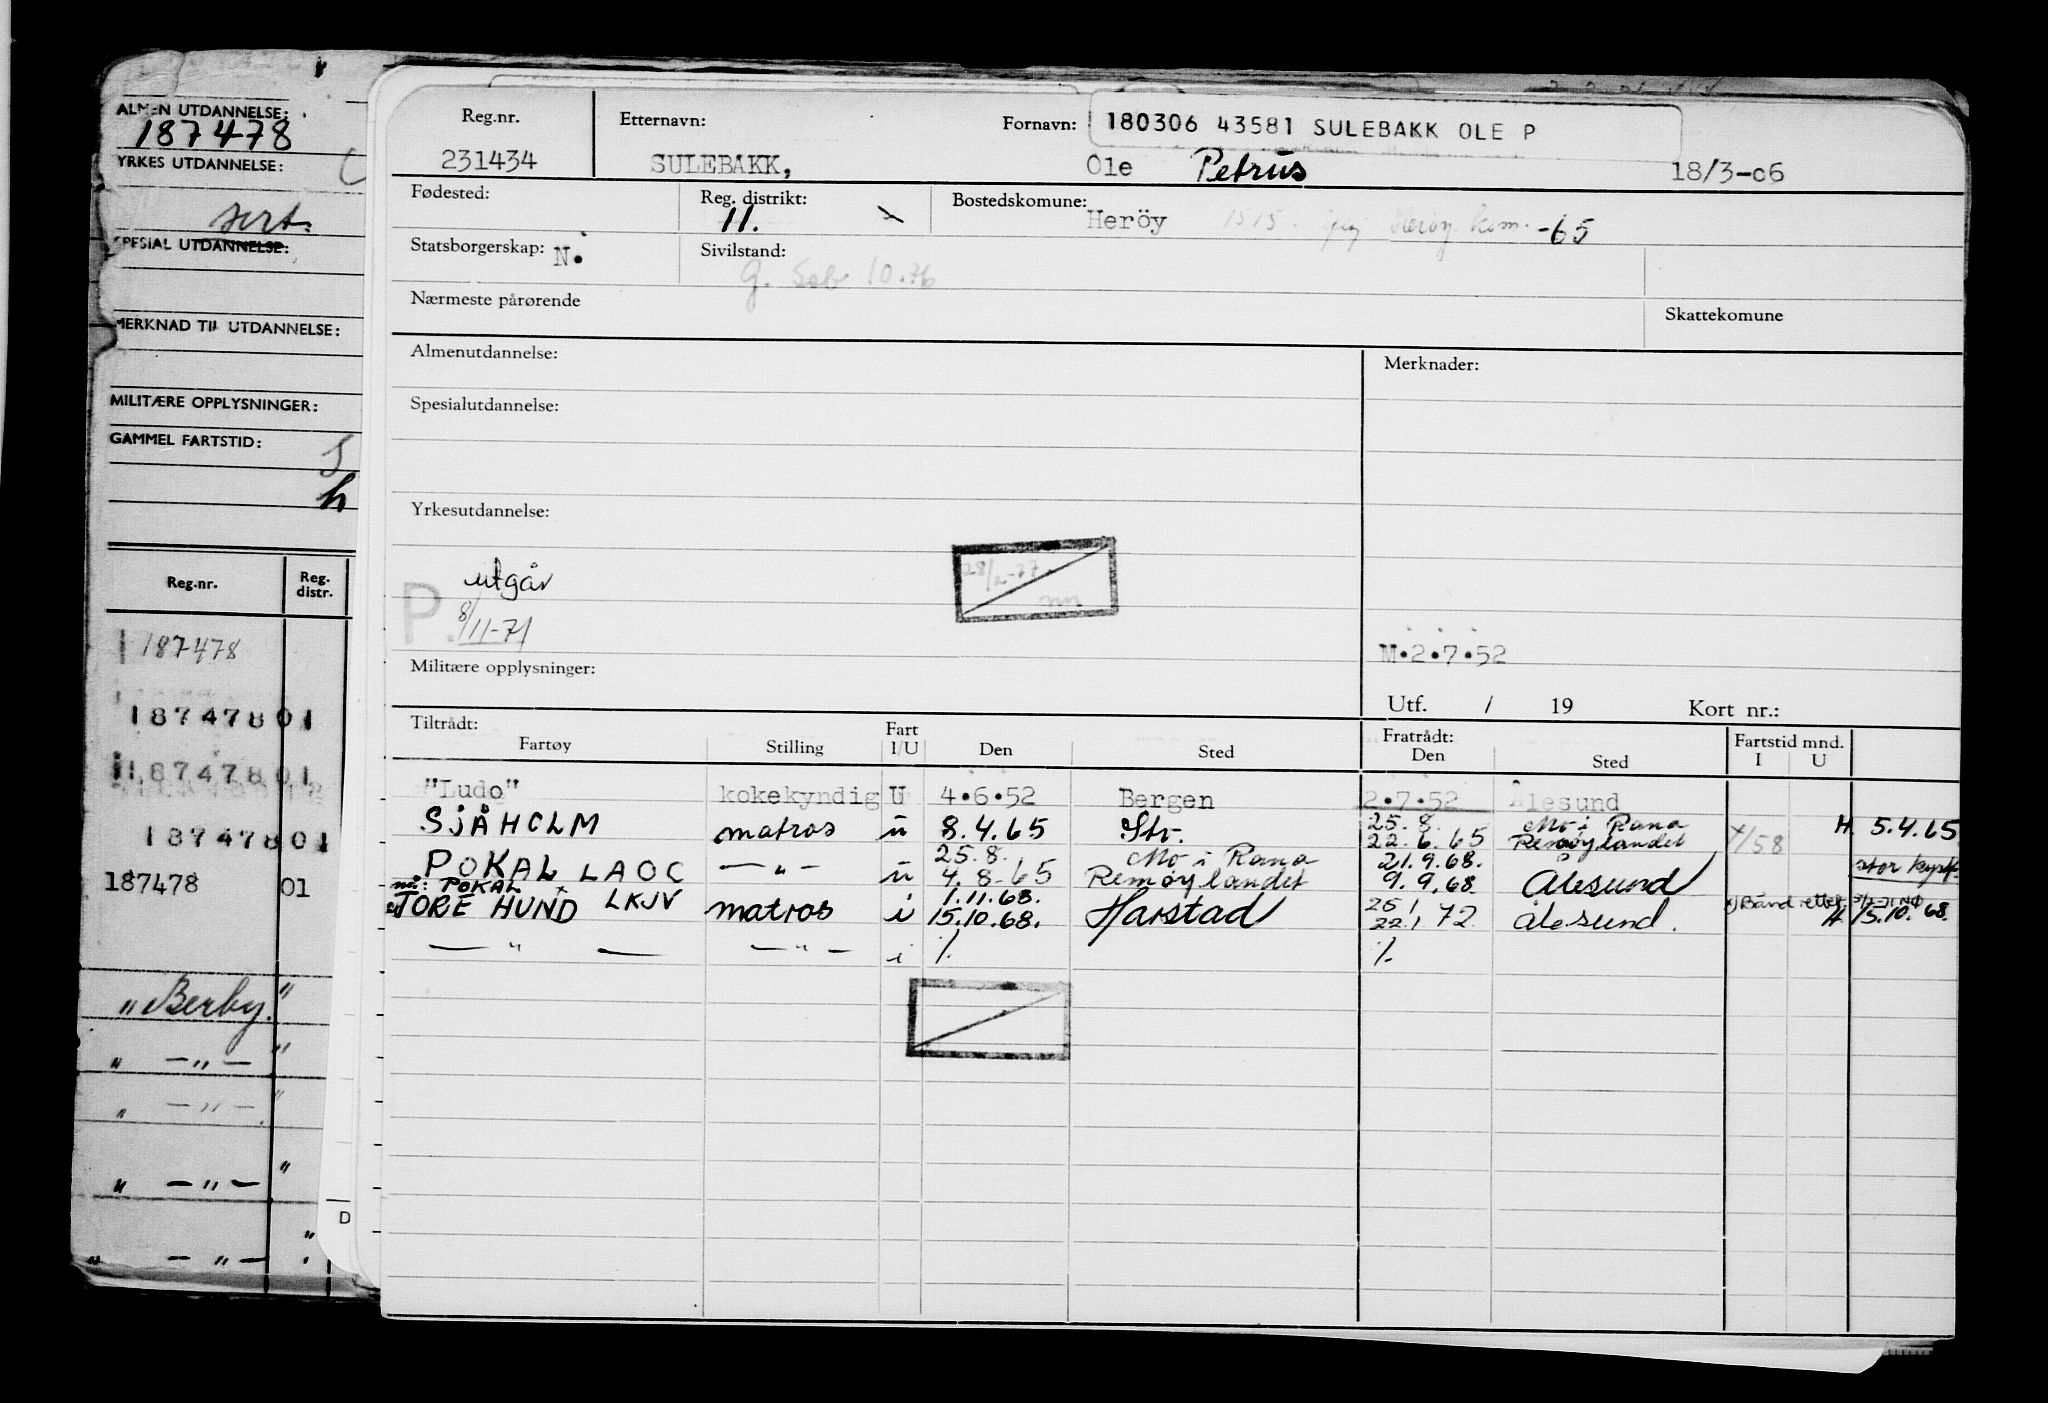 ALMEN UTDANNELSE:
187478
YRKES UTDANNELSE:
sert.
SPESIAL UTDANNELSE:
MERKNAD TIL UTDANNELSE:
MILITÆRE OPPLYSNINGER:
GAMMEL FARTSTID:
h
Reg.nr. Reg. distr.
187478
18747801
18747801
18747801
187478 01
"Berby."
" — " — "
" — " — "
" — " — "
" — " — "
D
Reg.nr. Etternavn: Fornavn: 180306 43581 SULEBAKK OLE P
231434 SULEBAKK, Ole Petrus 18/3-06
Fødested: Reg. distrikt: Bostedskomune:
11. Heröy 1515. Herøy kom. -65
Statsborgerskap: N. Sivilstand:
g. Seb 10.76
Nærmeste pårørende Skattekomune
Almenutdannelse: Merknader:
Spesialutdannelse:
Yrkesutdannelse:
28/2-77
P. utgår
8/11-71
M.2.7.52
Militære opplysninger:
Utf. / 19 Kort nr.:
Tiltrådt: Fart Fratrådt: Fartstid mnd.
Fartøy Stilling I/U Den Sted Den Sted I U
"Ludo" kokekyndig U 4.6.52 Bergen 2.7.52 Ålesund
25.8. Mo i Rana
SJÅHOLM matros u 8.4.65 Str. 22.6.65 Remøylandet /58 H. 5.4.65
25.8. Mo i Rana 21.9.68.
POKAL LAOC — " — u 4.8.65 Remøylandet 9.9.68 Ålesund
nå: POKAL 1.11.68. 25/
TORE HUND LKJV matros i 15.10.68. Harstad 22/1 72 Ålesund. H. 15.10.68.
— " — — " — i /. /.